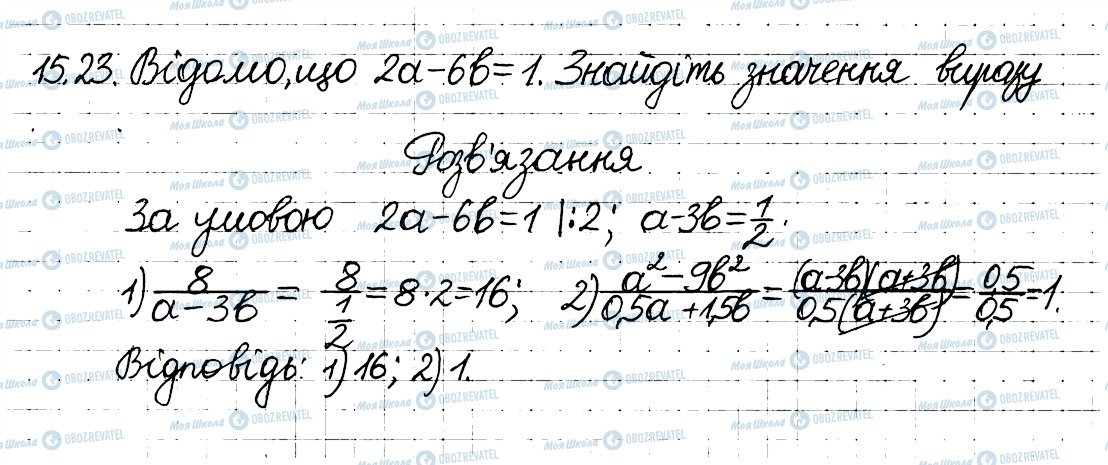 15.23. Відомо, що 2a-6b=1. Знайдіть значення виразу
Розв'язання.
За умовою 2a-6b=1 |:2; a-3b=1/2.
1) 8/(a-3b) = 8/(1/2) = 8·2=16; 2) (a²-9b²)/(0,5a+1,5b) = (a-3b)(a+3b)/(0,5(a+3b)) = 0,5/0,5 = 1.
Відповідь: 1) 16; 2) 1.